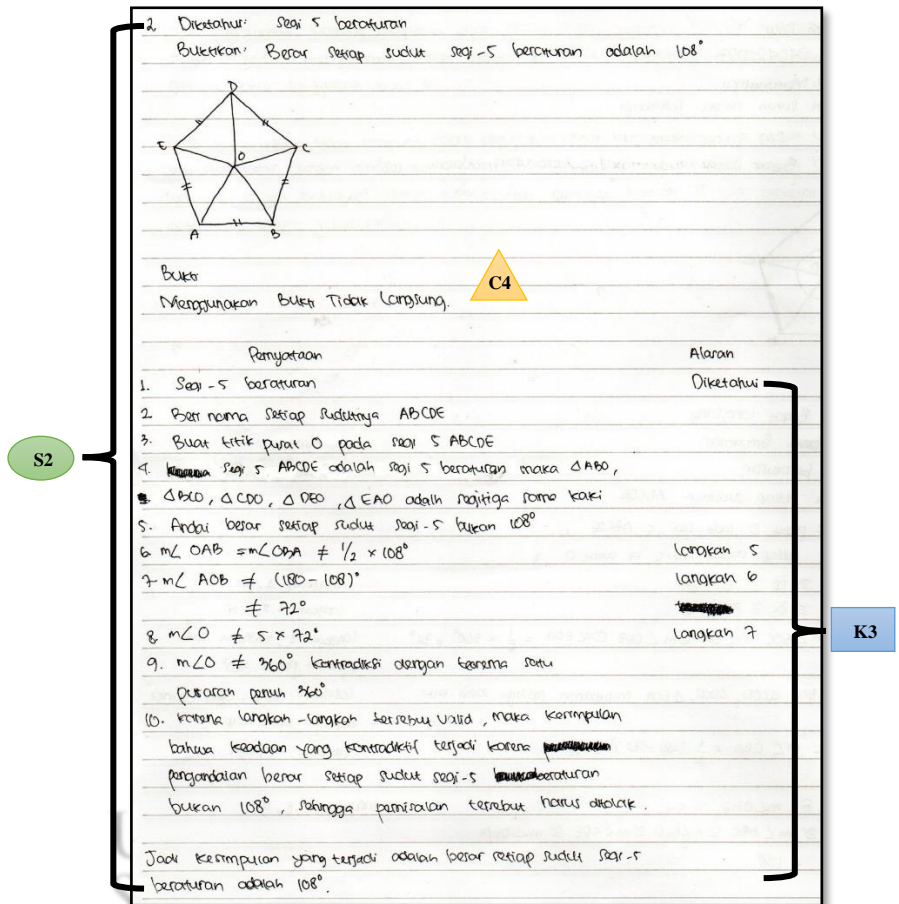 2. Diketahui: Segi 5 beraturan
Buktikan: Besar setiap sudut segi-5 beraturan adalah 108°
D
E
C
O
A
B
Bukti
C4
Menggunakan Bukti Tidak Langsung.
Pernyataan Alasan
1. Segi-5 beraturan Diketahui
2 Beri nama setiap sudutnya ABCDE
3. Buat titik pusat O pada segi 5 ABCDE
S2
4. Segi 5 ABCDE adalah segi 5 beraturan maka △ABO,
△BCO, △CDO, △DEO, △EAO adalh segitiga sama kaki
5. Andai besar setiap sudut segi-5 bukan 108°
6 m∠ OAB = m∠OBA ≠ 1/2 × 108° langkah 5
7 m∠ AOB ≠ (180 - 108)° langkah 6
≠ 72°
8. m∠O ≠ 5 × 72° langkah 7
K3
9. m∠O ≠ 360° kontradiksi dengan teorema satu
putaran penuh 360°
10. karena langkah-langkah tersebut valid, maka kesimpulan
bahwa keadaan yang kontradiktif terjadi karena
pengandaian besar setiap sudut segi-5 beraturan
bukan 108°, sehingga pemisalan tersebut harus ditolak.
Jadi kesimpulan yang terjadi adalah besar setiap sudut segi-5
beraturan adalah 108°.